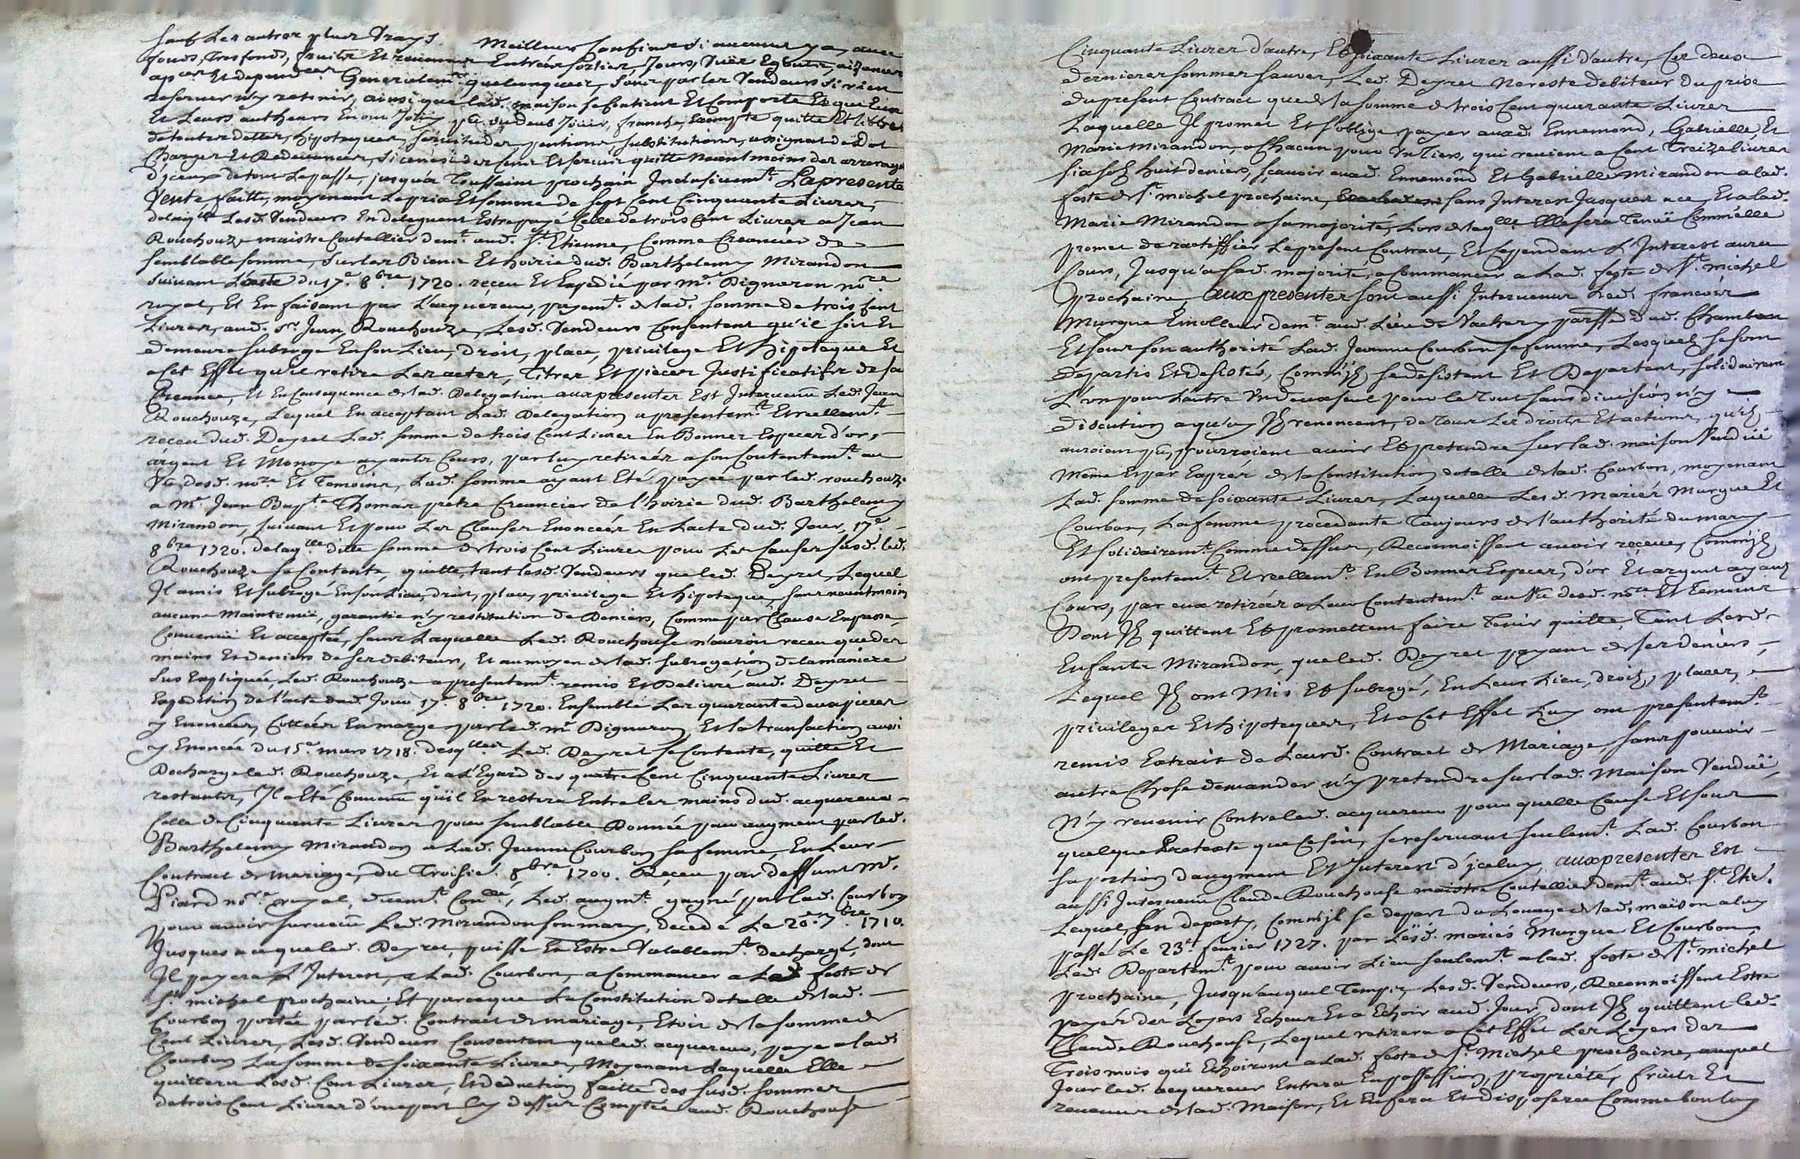 Sauf Les autres plus Vrays Meilleurs Confins si aucuns y en a, avec
fonds, tresfonds, fruits Et revenus Entrées sorties Jours, Vües Egouts, aizances
ap.ces Et dependces Generalemt quelconques, Sans par les Vendeurs Si rien
reserver n'y retenir, ainsi que lad. maison se Contient Et Comporte Et que Eux
Et Leurs autheurs En ont Joüy pû ou deub Jöuir, franche, Exempte quitte Et Libre
de toutes dettes, hipoteques, servitudes, pentions, substitutions, assignat de dot
Charges Et Redevances, Si ce n'est des Cens Et servis quitte neantmoins des arrerages
D'iceux de tout Le passé, jusqu'a Toussaint prochain Inclusivemt. La presente
Vente faitte, moyenant Le prix Et somme de Sept Cent Cinquante Livres,
delaqlle Lesd. Vendeurs En deleguent Estre payé Celle de trois Cent Livres a Jean
Rouchouze maistre Coutellier demt. aud. St. Etienne, Comme Creancier de
semblable somme, sur les Biens Et hoirie dud. Barthelemy Mirandon
Suivant L'acte du 17e 8bre 1720. reçeu Et Expedié par Me. Pigneron nore
royal, Et En faisant par L'acquereur, payemt. de lad. somme de trois Cent
Livres, aud. Sr. Jean Rouchouze, Lesd. Vendeurs Consentent qu'il soit Et
demeure subrogé En son Lieu, droit, place, privilege Et hipoteque Et
a Cet Effet qu'il retire Les actes, Titres Et pieces Justificatifes de sa
Creance, Et En Consequence de lad. Delegation aux presentes Est Intervenu Led. Jean
Rouchouze, Lequel En acceptant Lad. Delegation a presentemt. Et reellemt.
receu dud. Deyret Lad. somme de trois Cent Livres En Bonnes Especes d'or,
argent Et Monoye ayants Cours, par luy retirées a son Contentemt. au
Vû desd. nore Et Temoins, Lad. somme ayant Eté payée par led. rouchouze
a Me. Jean Bapte. Thomas pretre Creancier de l'hoirie dud. Barthelemy
Mirandon, suivant Et pour Les Clauses Enoncées En Lacte dud. Jour 17e
8bre 1720. delaqlle ditte somme de trois Cent Livres pour Les Causes susd. led.
Rouchouze se Contente, quitte, tant lesd. Vendeurs que led. Deyret, Lequel
Il a mis Et subrogé En son Lieu, droit, place, privilege Et hipoteque, sans neantmoins
aucune Maintenüe, garantie n'y restitution de Deniers, Comme par Clause Expresse
Convenüe Et acceptée, sans Laquelle Led. Rouchouze n'auroit receu que des
mains Et deniers de ses debiteurs, Et au moyen de lad. subrogation de la maniere
Sus Expliquée Led. Rouchouze a presentemt. remis Et Delivré aud. Deyret
Expedition de l'acte dud. Jour 17e 8bre 1720. Ensemble Les quarante deux pieces
y Enoncées, Cottées En marge par led. Me. Pigneron, Et la transaction aussi
y Enoncée du 15e mars 1718. desqlles Led. Deyret se Contente, quitte Et
Decharge led. Rouchouze, Et a L'Egard des quatre Cent Cinquante Livres
restantes, Il a Eté Convenu qu'il En restera Entre les mains dud. acquereur
Celle de Cinquante Livres pour semblable Donnée pour augment par led.
Barthelemy Mirandon a Lad. Jeanne Courbon sa femme, En Leur
Contract de mariage, du Troisie. 8bre 1700. Reçeu par deffunt Me.
Piard nore royal, Led. augmt. gagné par lad. Courbon
pour avoir survecu Led. Mirandon son mary, decedé Le 20e 7bre 1710.
Jusques a ce que led. Deyret, puisse En Estre Valablemt. dechargé, dont
Il payera L'Interest, a Lad. Courbon, a Commancer a Lad. feste de
St. michel prochaine. Et parceque La Constitution dotalle de lad.
Courbon portée par led. Contract de mariage, Etoit de la somme de
Cent Livres, Lesd. Vendeurs Consentent que led. acquereur, paye a lad.
Courbon La somme de soixante Livres, Moyenant Laquelle Elle
quittera Lesd. Cent Livres, Et deduction faitte des susd. sommes
de trois Cent Livres d'une part Cy dessus Comptée aud. Rouchouse
Cinquante Livres d'autre, Et soixante Livres aussi d'autre, Ces deux
dernieres sommes sauves, Led. Deyret Ne reste debiteur du prix
du present Contract que de la somme de trois Cent quarante Livres
Laquelle Il promet Et s'oblige payer auxd. Ennemond, Gabrielle Et
Marie Mirandon, a Chacun pour Un Tiers, qui revient a Cent Treize livres
six sols huit deniers, sçavoir auxd. Ennemond Et Gabrielle Mirandon a lad.
feste de St. michel prochaine, sans Interest Jusques a ce, Et a lad.
Marie Mirandon a sa majorité, Lors delaqlle Elle sera Tenuë Comm'elle
promet de ratiffier Le present Contract, Et Cependant L'Interest aura
Cours, Jusqu'a sad. majorité, a Commancer a Lad. feste de St. michel
prochaine, aux presentes sont aussi Intervenus Led. françois
Murgue Emolleur demt. aud. Lieu de Vachery parsse. dud. Chambon
Et sous son authorité Lad. Jeanne Courbon sa femme, Lesquels se sont
Departis Et desistés, Comm'ils se desistent Et Departent, solidairemt.
L'un pour Lautre Un deux seul pour le Tout sans division n'y
discution a quoy Ils renoncent, de tous Les droits Et actions, qu'ils
auroient pû, pourroient avoir Et pretendre sur lad. maison Venduë
Meme Et par Exprés de la Constitution dotalle de lad. Courbon, moyenant
Lad. somme de soixante Livres, Laquelle Lesd. Mariés Murgue Et
Courbon, La femme procedante Toujours de l'authorité du mary
Et solidairemt. Comme dessus, Reconnoissent avoir receüe, Comm'ils
ont presentemt. Et reellemt. En Bonnes Especes, d'or Et argent ayants
Cours, par eux retirées a Leur Contentemt. au Vû desd. nore Et Temoins
Dont Ils quittent Et promettent faire Tenir quittes Tant Lesd.
Enfants Mirandon, que led. Deyret payant de ses deniers,
Lequel Ils ont Mis Et subrogé, En Leur Lieu, droits, places,
privileges Et hipoteques, Et a Cet Effet Luy ont presentemt.
remis Extrait de Leurd. Contract de Mariage, sans pouvoir
autre Chose demander n'y pretendre sur lad. Maison Venduë,
N'y revenir Contre led. acquereur pour quelle Cause Et sous
quelque Pretexte que Ce soit, se reservant seulemt. Lad. Courbon
sa portion d'augment Et Interest d'jceluy, aux presentes Est
aussi Intervenu Claude Rouchouse maistre Coutellier demt. aud. St. Etie.
Lequel, s'en departy, Comm'jl se depart du Louage de lad. maison a luy
passé Le 23e fevrier 1727. par Lesd. mariés Murgue Et Courbon,
Led. Departemt. pour avoir Lieu seulemt. a lad. feste de St. michel
prochaine, Jusqu'auquel Temps, Lesd. Vendeurs, Reconnoissent Estre
payés des Loyers Echeus Et a Echoir aud. Jour, dont Ils quittent led.
Claude Rouchouse, Lequel retirera a Cet Effet Les Loyers des
Trois mois qui Echoiront a Lad. feste de St. Michel prochaine, auquel
Jour led. acquereur Entrera En possession, propriété, fruits Et
revenus de lad. Maison, Et En fera Et disposera Comme bon luy